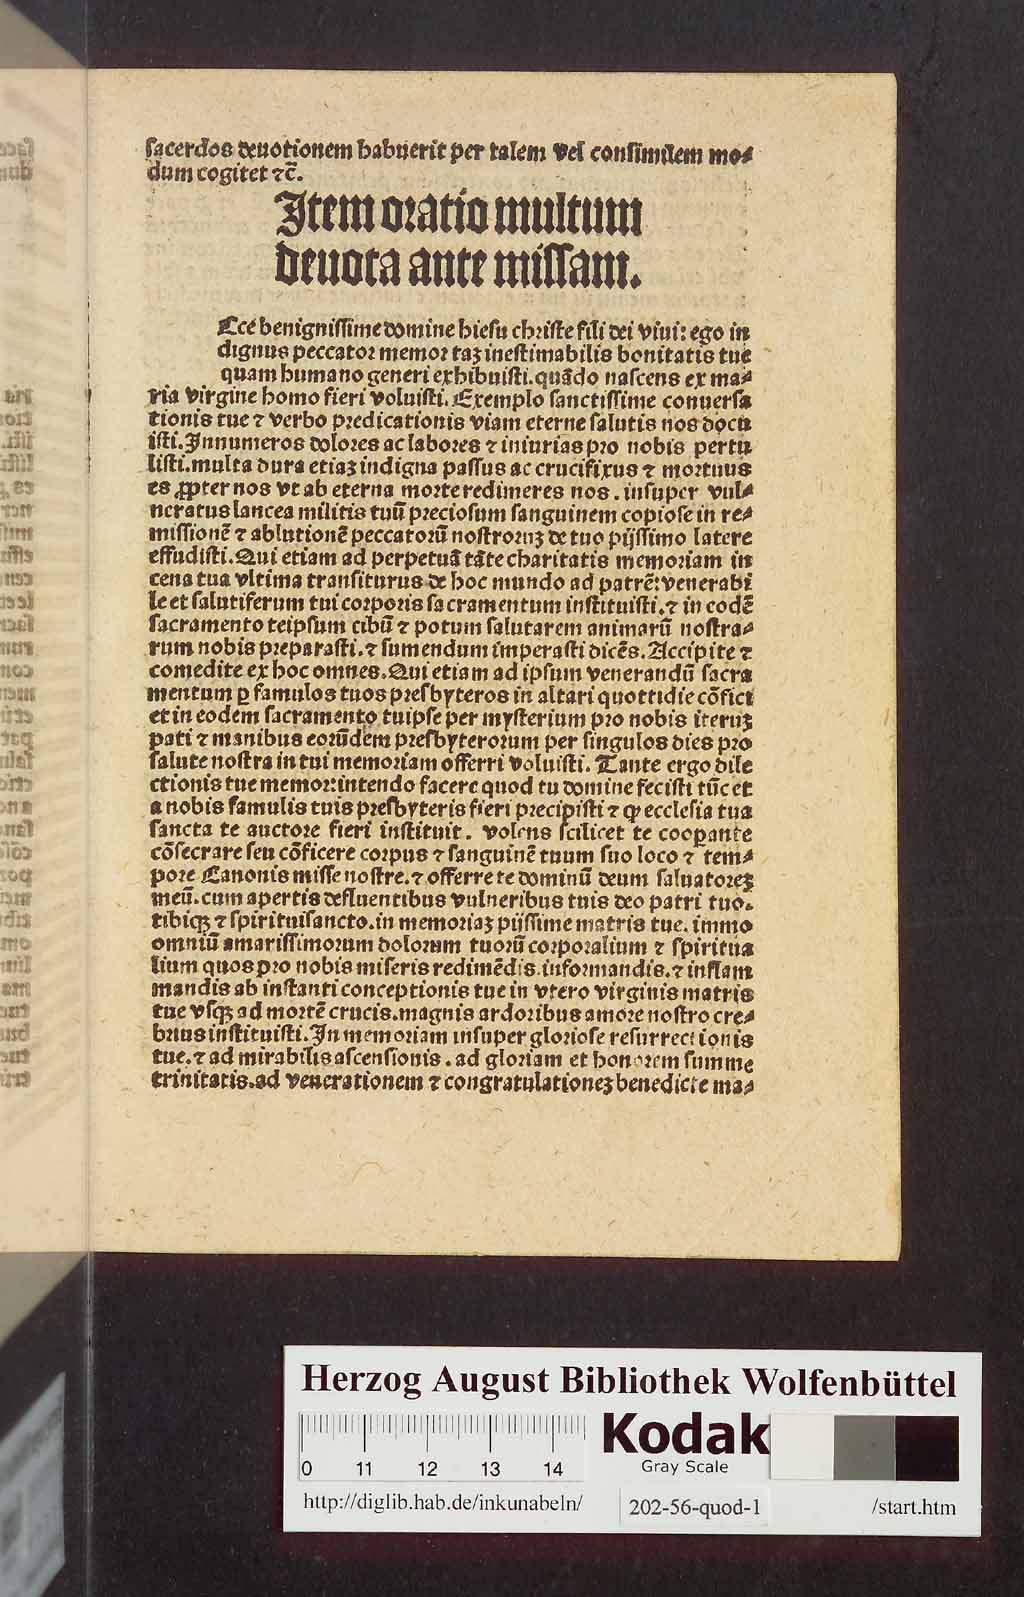 sacerdos deuotionem habuerit per talem vel consimilem mo⸗
dum cogitet ⁊c̄.
Item oratio multum
deuota ante missam.
Cce benignissime domine hiesu christe fili dei viui: ego in
dignus peccator memor taꝫ inestimabilis bonitatis tue
quam humano generi exhibuisti. quādo nascens ex ma⸗
ria virgine homo fieri voluisti. Exemplo sanctissime conuersa
tionis tue ⁊ verbo predicationis viam eterne salutis nos docu
isti. Innumeros dolores ac labores ⁊ iniurias pro nobis pertu
listi. multa dura etiaꝫ indigna passus ac crucifixus ⁊ mortuus
es ꝓpter nos vt ab eterna morte redimeres nos. insuper vul⸗
neratus lancea militis tuū preciosum sanguinem copiose in re⸗
missionē ⁊ ablutionē peccatorū nostroruꝫ de tuo pijssimo latere
effudisti. Qui etiam ad perpetuā tāte charitatis memoriam in
cena tua vltima transiturus de hoc mundo ad patrē: venerabi
le et salutiferum tui corporis sacramentum instituisti. ⁊ in eodē
sacramento teipsum cibū ⁊ potum salutarem animarū nostra⸗
rum nobis preparasti. ⁊ sumendum imperasti dicēs. Accipite ⁊
comedite ex hoc omnes. Qui etiam ad ipsum venerandū sacra
mentum ꝑ famulos tuos presbyteros in altari quottidie cōfici
et in eodem sacramento tuipse per mysterium pro nobis iteruꝫ
pati ⁊ manibus eorūdem presbyterorum per singulos dies pro
salute nostra in tui memoriam offerri voluisti. Tante ergo dile
ctionis tue memor: intendo facere quod tu domine fecisti tūc et
a nobis famulis tuis presbyteris fieri precipisti ⁊ ꝙ ecclesia tua
sancta te auctore fieri instituit. volens scilicet te cooꝑante
cōsecrare seu cōficere corpus ⁊ sanguinē tuum suo loco ⁊ tem⸗
pore Canonis misse nostre. ⁊ offerre te dominū deum saluatoreꝫ
meū. cum apertis defluentibus vulneribus tuis deo patri tuo.
tibiqꝫ ⁊ spirituisancto. in memoriaꝫ pijssime matris tue. immo
omniū amarissimorum dolorum tuorū corporalium ⁊ spiritua
lium quos pro nobis miseris redimēdis. informandis. ⁊ inflam
mandis ab instanti conceptionis tue in vtero virginis matris
tue vsqꝫ ad mortē crucis. magnis ardoribus amore nostro cre⸗
brius instituisti. In memoriam insuper gloriose resurrectionis
tue. ⁊ ad mirabilis ascensionis. ad gloriam et honorem summe
trinitatis. ad venerationem ⁊ congratulationeꝫ benedicte ma⸗
Herzog August Bibliothek Wolfenbüttel
Kodak
Gray Scale
0 11 12 13 14
http://diglib.hab.de/inkunabeln/ 202-56-quod-1 /start.htm